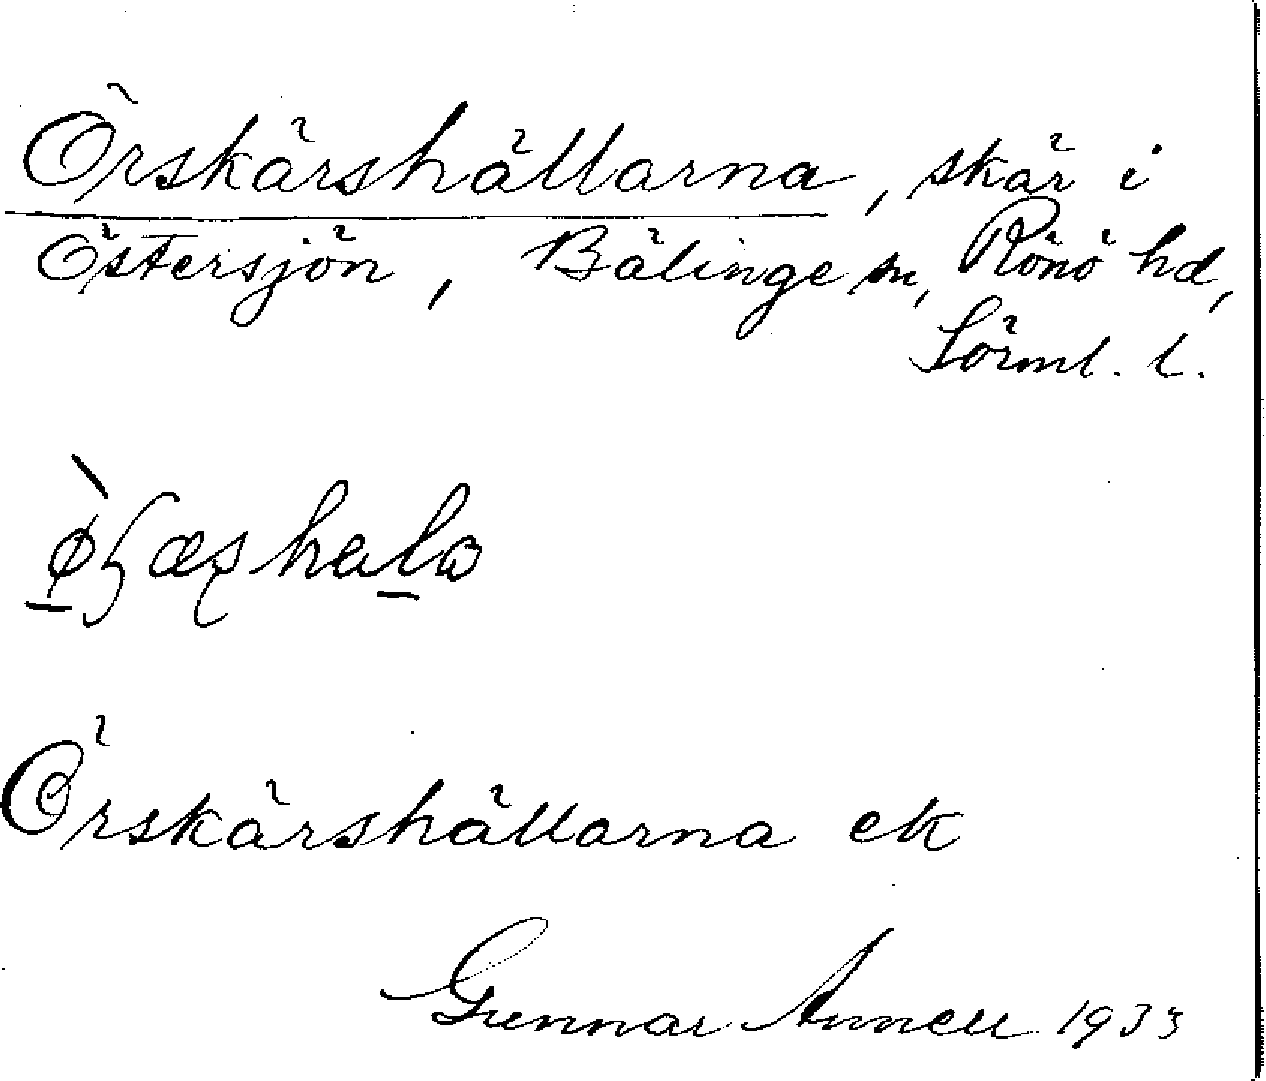 Örskärshällarna, skär i
Östersjön, Bälinge sn, Rönö hd,
Sörml. l.
Örskärshällarna ek
Gunnar Annell 1933